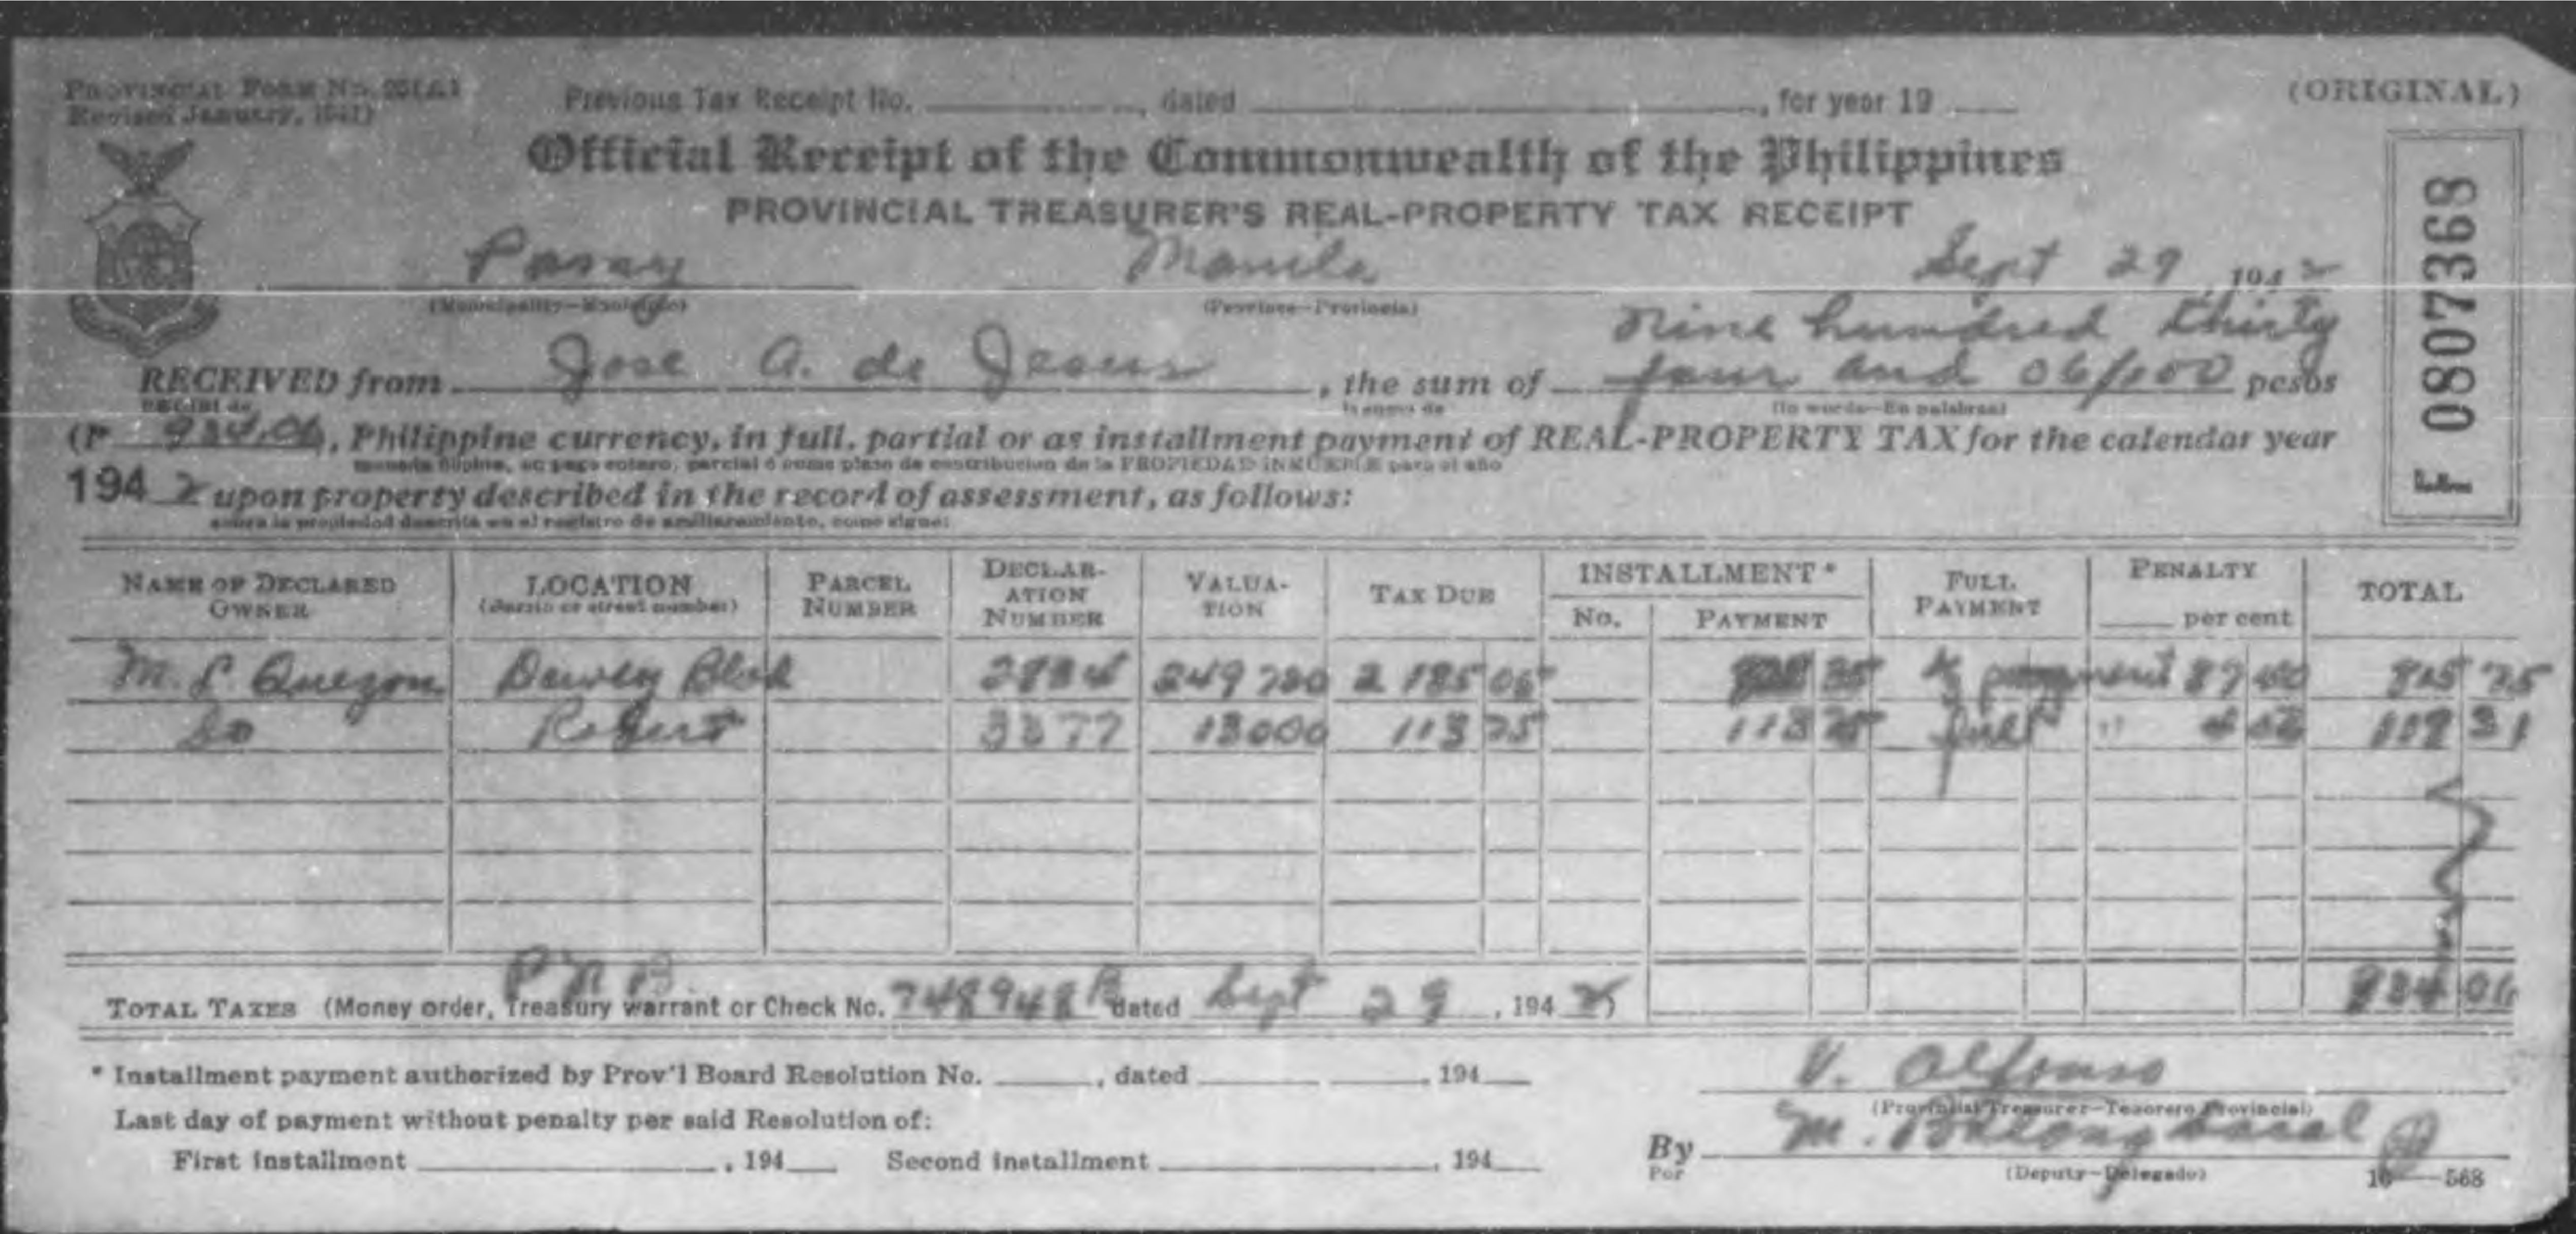 PROVINCIAL FORM No. 25(A)
Revised January, 1941)
Previous Tax Receipt No. , dated , for year 19
(ORIGINAL)
Official Receipt of the Commonwealth of the Philippines
PROVINCIAL TREASURER'S REAL-PROPERTY TAX RECEIPT
F 0807368
Pasay Manila Sept 29, 1942
(Municipality—Municipio) (Province—Provincia)
nine hundred thirty
RECEIVED from Jose A. de Jesus, the sum of four and 06/100 pesos
RECIBI de la suma de (In words—En palabras)
(₱ 934.06), Philippine currency, in full, partial or as installment payment of REAL-PROPERTY TAX for the calendar year
moneda filipina, en pago entero, parcial ó como plazo de contribucion de la PROPIEDAD INMUEBLE para el año
1942 upon property described in the record of assessment, as follows:
sobre la propiedad descrita en el registro de amillaramiento, como sigue:
NAME OF DECLARED OWNER LOCATION (Barrio or street number) PARCEL NUMBER DECLARATION NUMBER VALUATION TAX DUE INSTALLMENT* No. PAYMENT FULL PAYMENT PENALTY per cent TOTAL
M. L. Quezon Dewey Blvd 249720 2 185 05 payment 87 40
Do Roberts 3377 13000 113 75 113 75 full " 119 31
TOTAL TAXES (Money order, Treasury warrant or Check No. P N B 748948 B dated Sept 29, 1942) 934 06
* Installment payment authorized by Prov'l Board Resolution No. , dated , 194
Last day of payment without penalty per said Resolution of:
First installment , 194 Second installment , 194
V. Alfonso
(Provincial Treasurer—Tesorero Provincial)
By M.
Por (Deputy—Delegado)
16—568